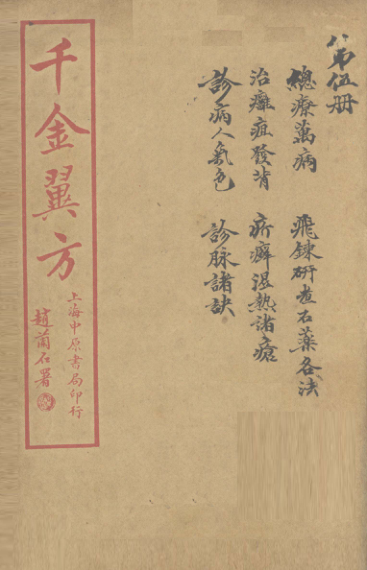 第伍册
總療萬病 飛鍊研煮石藥各法
治癰疽發背 疥癬湿熱諸瘡
診病人氣色 診脉諸訣
千金翼方
上海中原書局印行
趙蘭石署